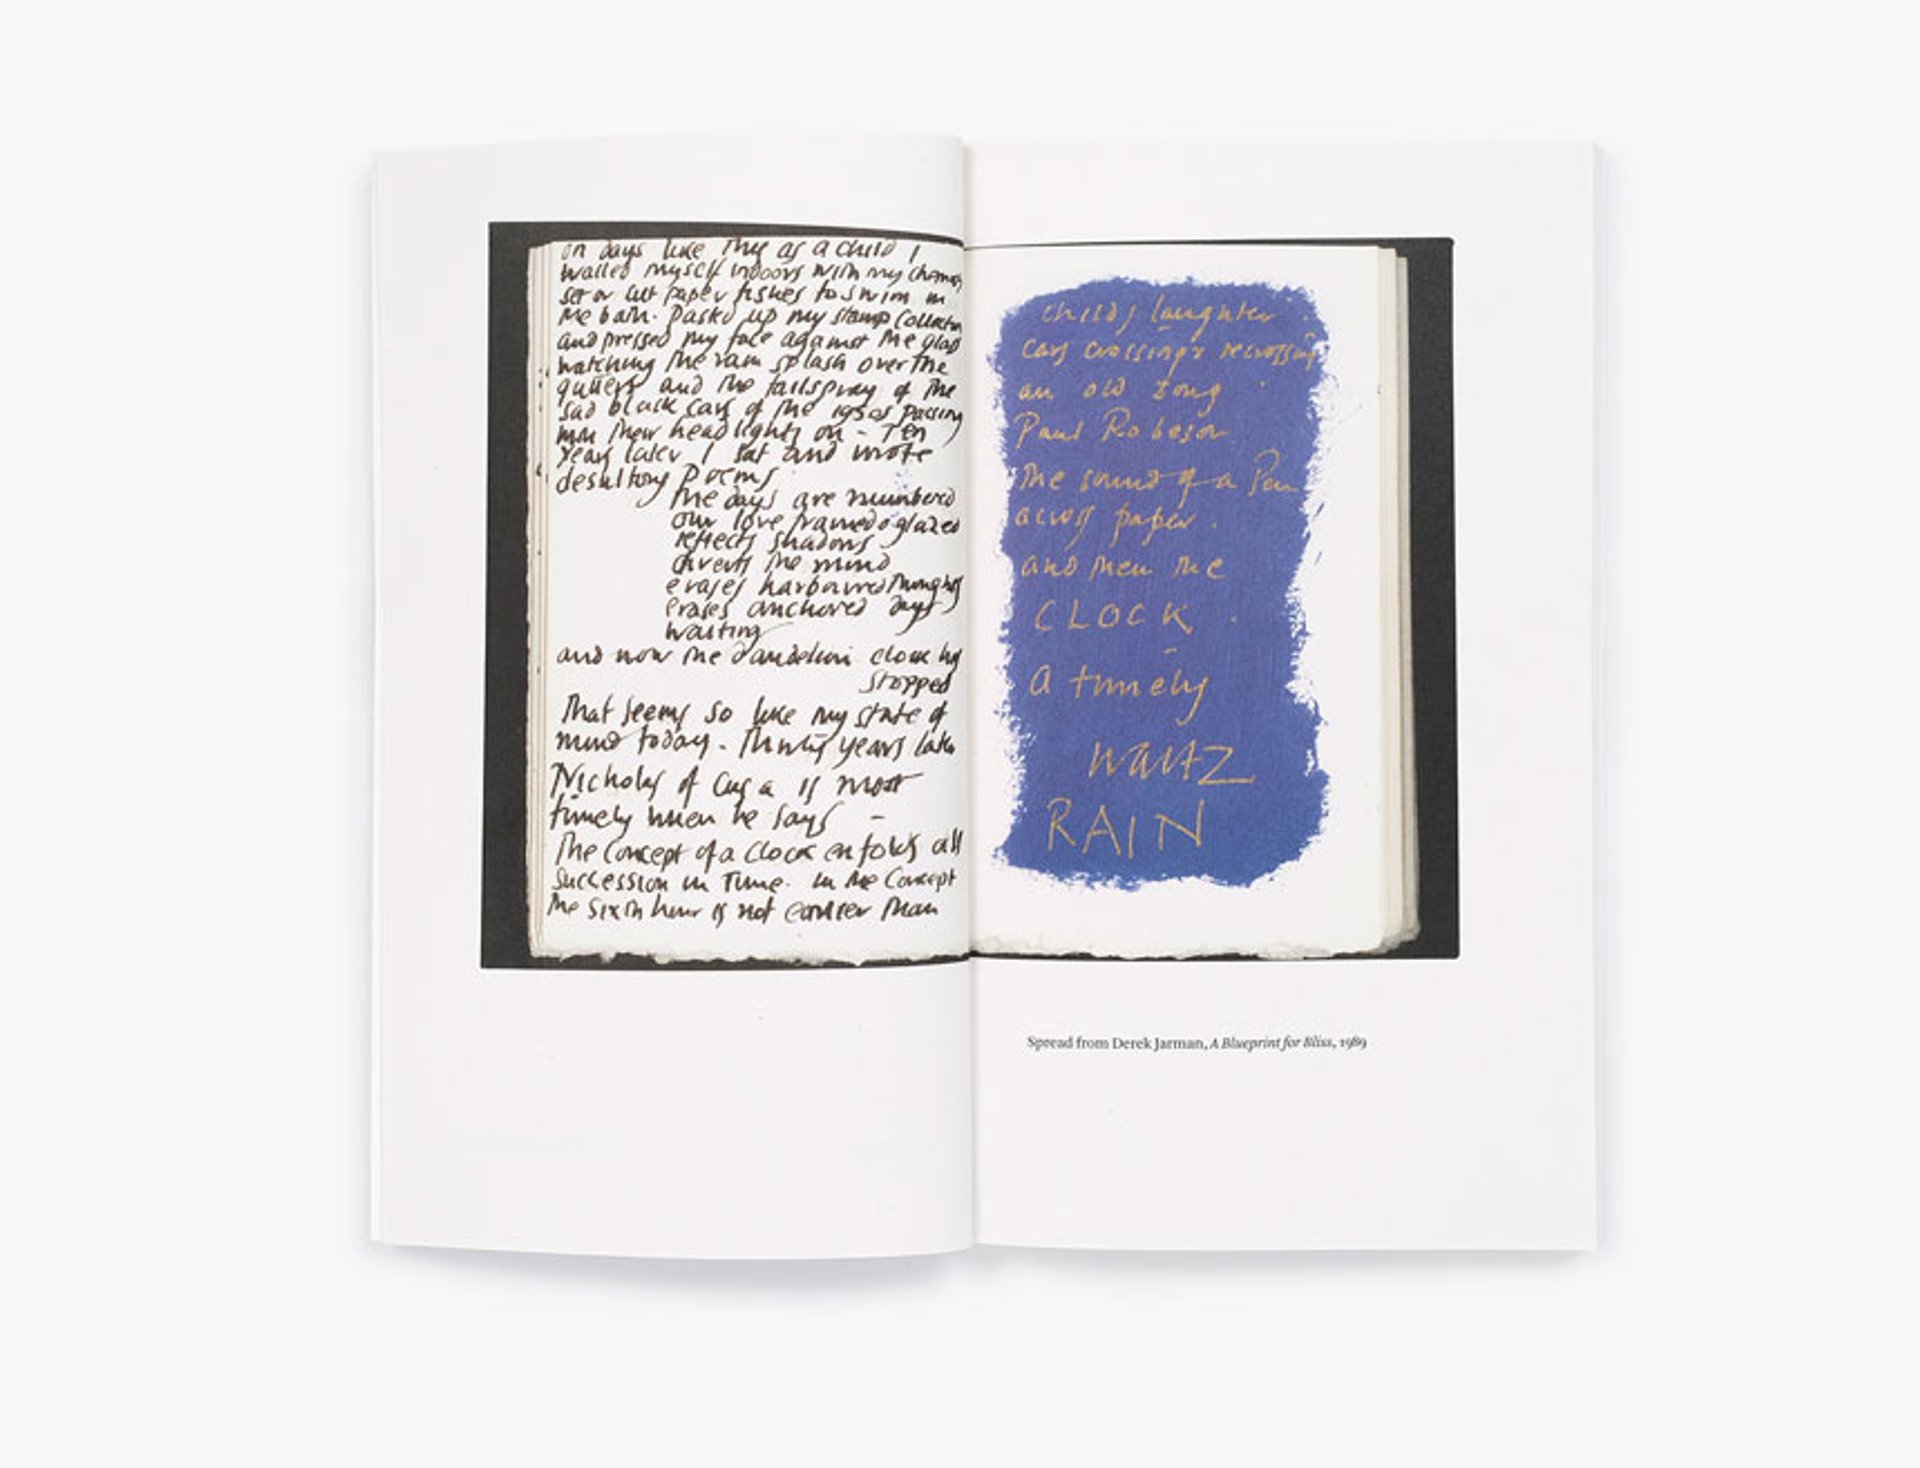 on days like this as a child I
walled myself indoors with my
set or cut paper fishes to swim in
the bath. Pasted up my stamp collection
and pressed my face against the glass
watching the rain splash over the
gutters and the tailspray of the
sad black cars of the 1950s passing
with their headlights on - Ten
years later I sat and wrote
desultory poems
the days are numbered
our love framed & glazed
reflects shadows
diverts the mind
erases harboured thoughts
erases anchored days
waiting
and now the dandelion clock has
stopped
That seems so like my state of
mind today. Thirty years later
Nicholas of Cusa is most
timely when he says -
The Concept of a clock enfolds all
succession in Time. In the Concept
the sixth hour is not earlier than
childs laughter
cars crossing & recrossing
an old song
Paul Robeson
the sound of a Pen
across paper.
and then the
CLOCK.
a timely
waltz
RAIN
Spread from Derek Jarman, A Blueprint for Bliss, 1989